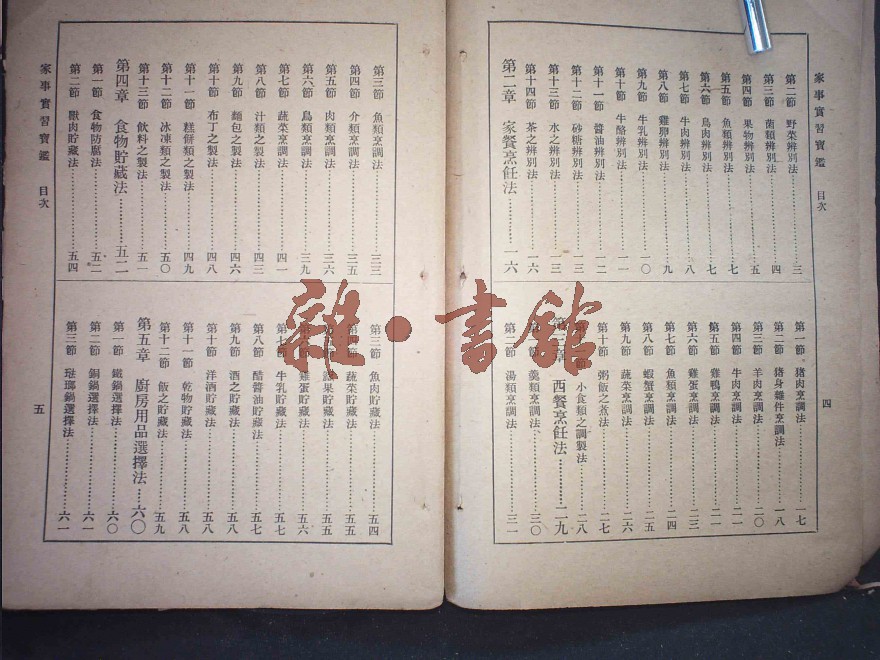 家事實習寶鑑 目次
四
第二節 野菜辨別法 三
第三節 菌類辨別法 四
第四節 果物辨別法 五
第五節 魚類辨別法 七
第六節 鳥肉辨別法 七
第七節 牛肉辨別法 八
第八節 雞卵辨別法 九
第九節 牛乳辨別法 一〇
第十節 牛酪辨別法 一一
第十一節 醬油辨別法 一二
第十二節 砂糖辨別法 一三
第十三節 水之辨別法 一三
第十四節 茶之辨別法 一六
第二章 家餐烹飪法 一六
第一節 豬肉烹調法 一七
第二節 豬身雜件烹調法 一八
第三節 羊肉烹調法 二〇
第四節 牛肉烹調法 二一
第五節 雞鴨烹調法 二一
第六節 雞蛋烹調法 二三
第七節 魚類烹調法 二四
第八節 蝦蟹烹調法 二五
第九節 蔬菜烹調法 二六
第十節 粥飯之煮法 二七
小食類之調製法 二八
第三章 西餐烹飪法 二九
第一節 羹類烹調法 三〇
第二節 湯類烹調法 三一
家事實習寶鑑 目次
五
第三節 魚類烹調法 三三
第四節 介類烹調法 三五
第五節 肉類烹調法 三六
第六節 鳥類烹調法 三九
第七節 蔬菜烹調法 四一
第八節 汁類之製法 四三
第九節 麵包之製法 四六
第十節 布丁之製法 四八
第十一節 糕餅類之製法 四九
第十二節 冰凍類之製法 五〇
第十三節 飲料之製法 五一
第四章 食物貯藏法 五二
第一節 食物防腐法 五二
第二節 獸肉貯藏法 五四
第三節 魚肉貯藏法 五四
第四節 蔬菜貯藏法 五五
果貯藏法 五五
雞蛋貯藏法 五六
第七節 牛乳貯藏法 五七
第八節 醋醬油貯藏法 五七
第九節 酒之貯藏法 五八
第十節 洋酒貯藏法 五八
第十一節 乾物貯藏法 五八
第十二節 飯之貯藏法 五九
第五章 廚房用品選擇法 六〇
第一節 鐵鍋選擇法 六〇
第二節 銅鍋選擇法 六一
第三節 琺瑯鍋選擇法 六一
雜·書館